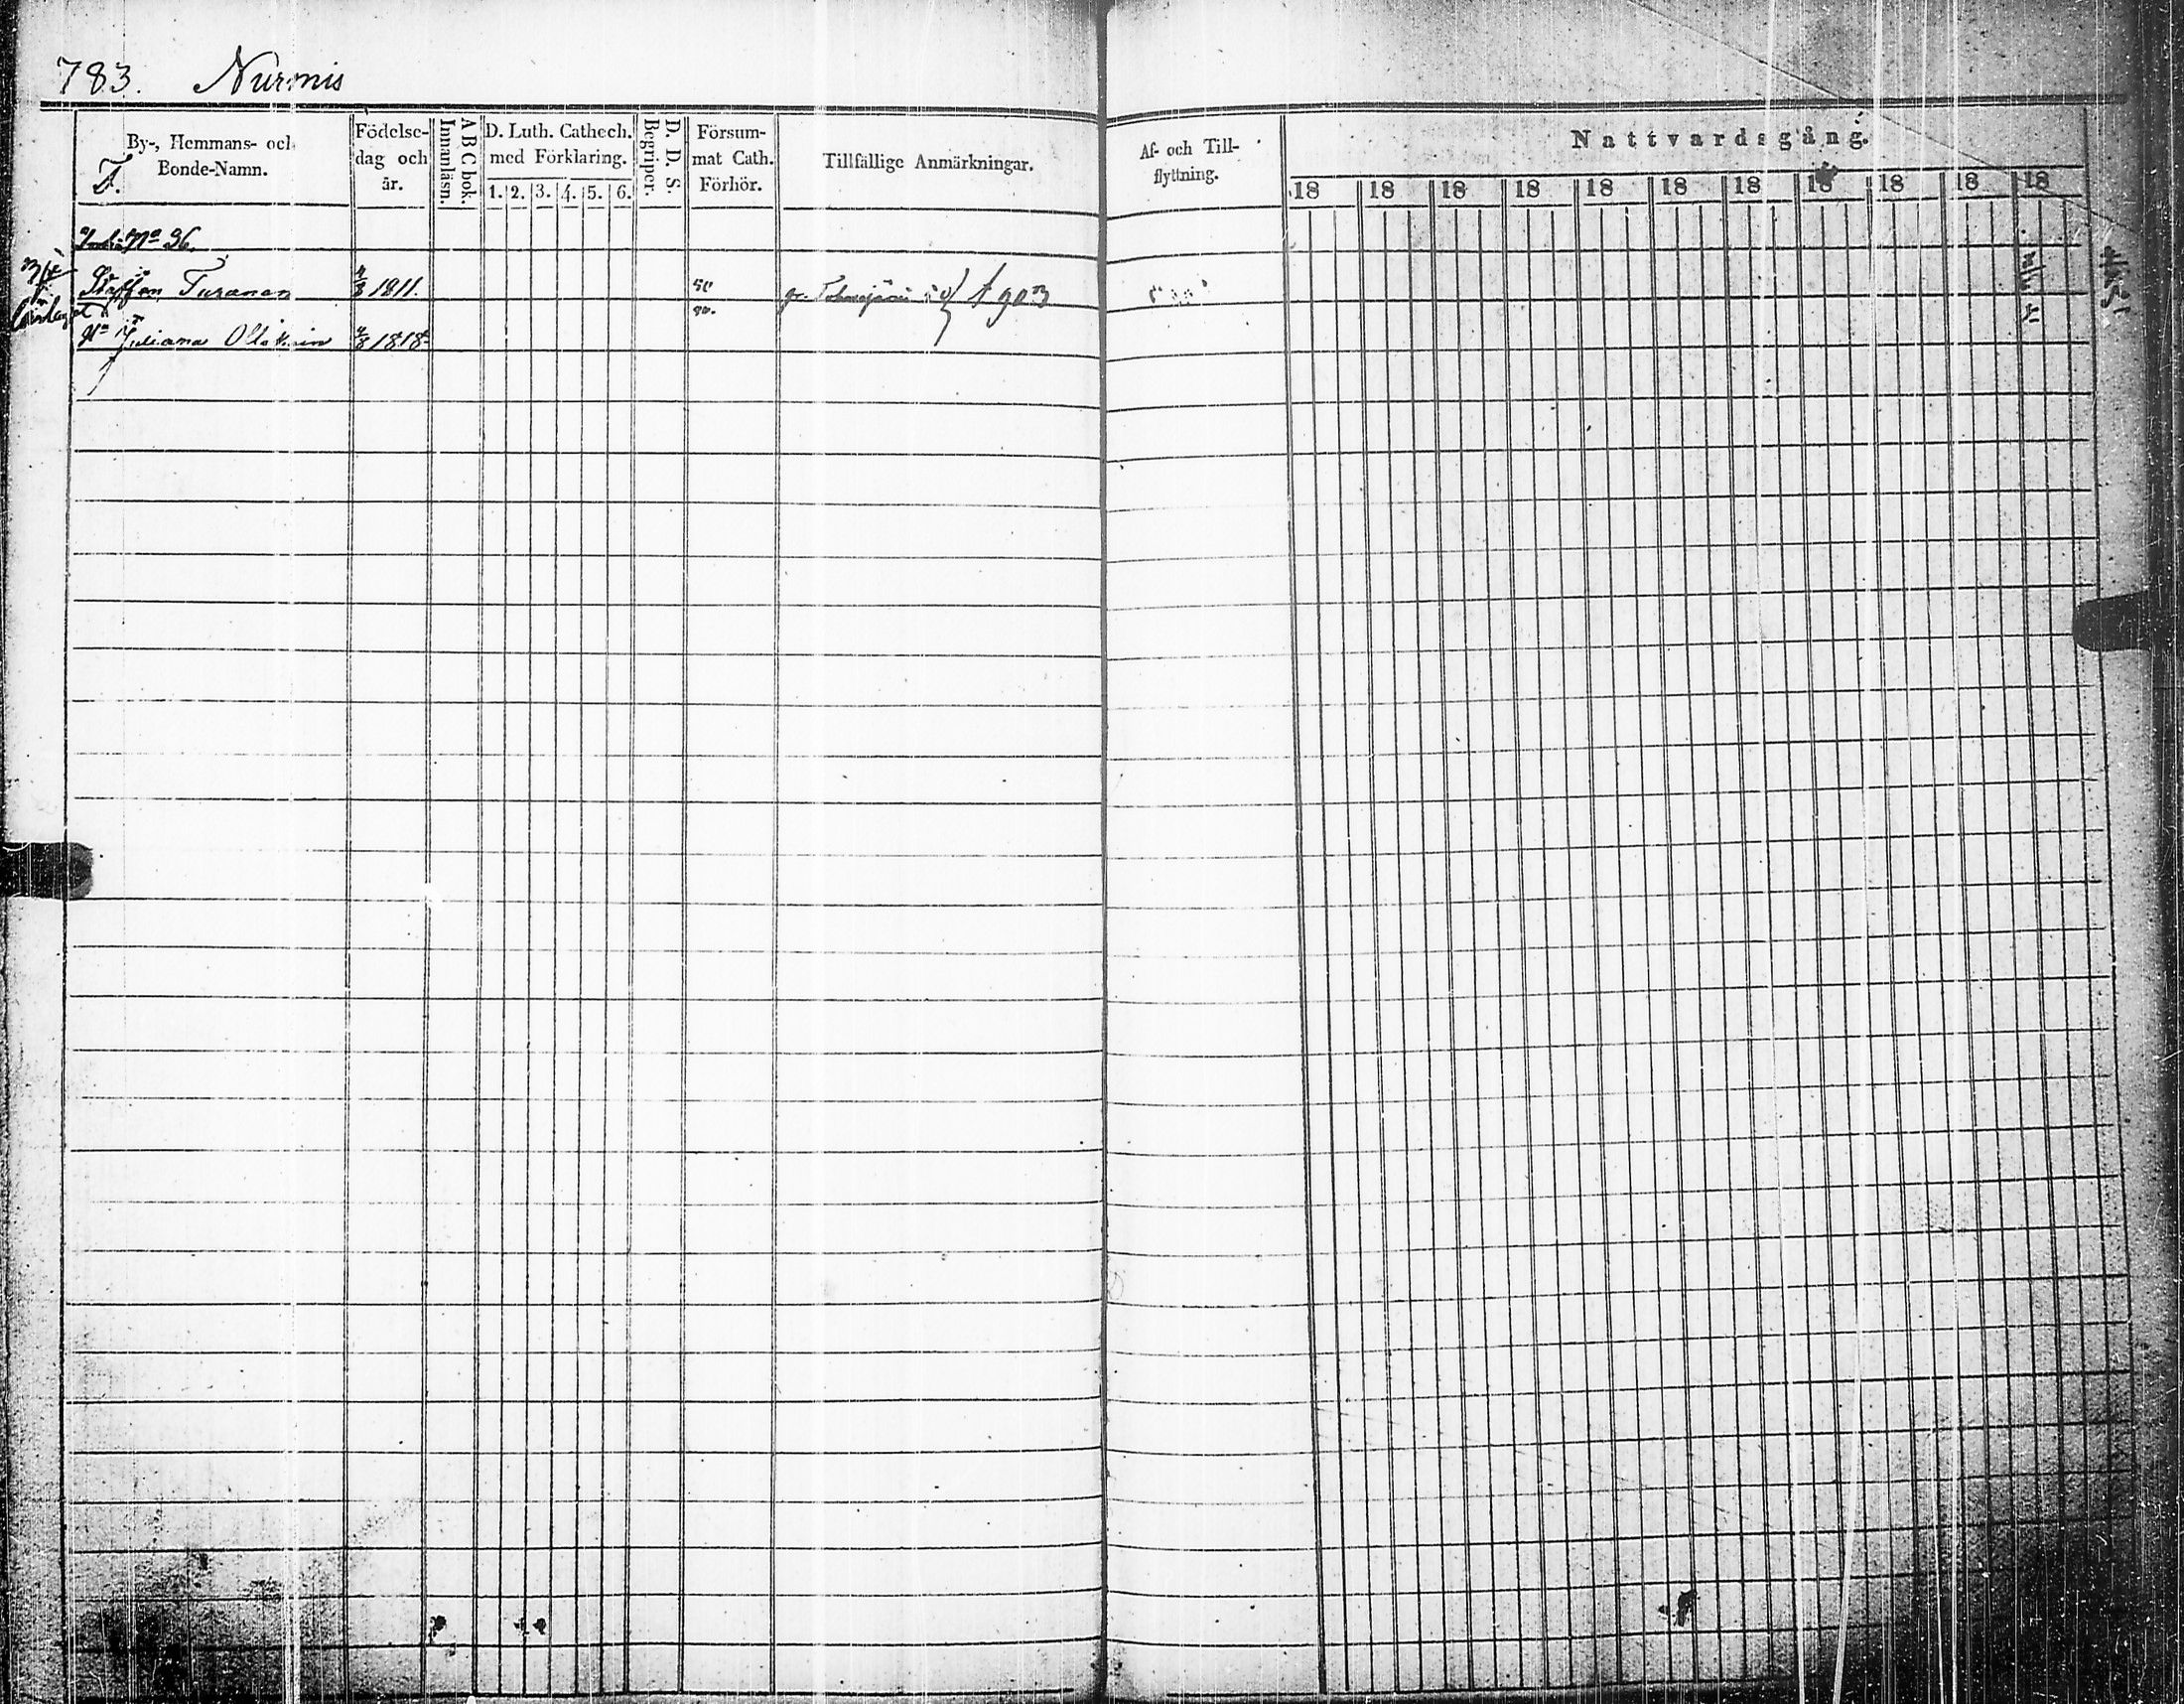 783. Nurmis
By-, Hemmans- och
Bonde-Namn.
T.
Födelse-
dag och
år.
A B C bok.
Innanläsn.
D. Luth. Cathech.
med Förklaring.
1. 2. 3. 4. 5. 6.
D. D. S.
Begriper.
Försum-
mat Cath.
Förhör.
Tillfällige Anmärkningar.
Af- och Till-
flyttning.
Nattvardsgång.
18 18 18 18 18 18 18 18 18 18 18
No 36.
Staffan Turanen 1811. 50 903
Juliana 1818